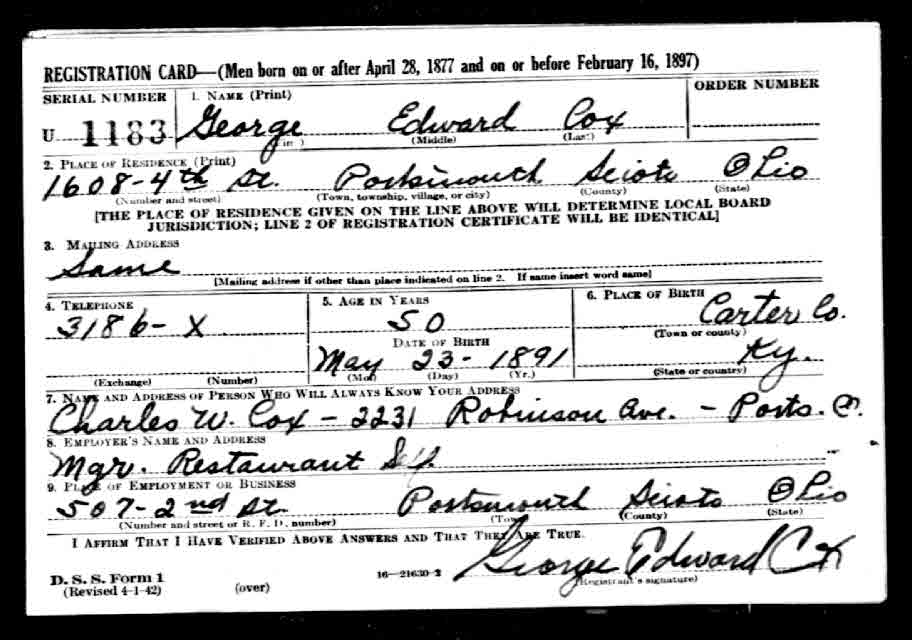 REGISTRATION CARD—(Men born on or after April 28, 1877 and on or before February 16, 1897)
SERIAL NUMBER 1. NAME (Print) ORDER NUMBER
U 1183 George Edward Cox
(Middle) (Last)
2. PLACE OF RESIDENCE (Print)
1608-4th St. Portsmouth Scioto Ohio
(Number and street) (Town, township, village, or city) (County) (State)
[THE PLACE OF RESIDENCE GIVEN ON THE LINE ABOVE WILL DETERMINE LOCAL BOARD
JURISDICTION; LINE 2 OF REGISTRATION CERTIFICATE WILL BE IDENTICAL]
3. MAILING ADDRESS
Same
[Mailing address if other than place indicated on line 2. If same insert word same]
4. TELEPHONE 5. AGE IN YEARS 6. PLACE OF BIRTH
3186-X 50 Carter Co.
DATE OF BIRTH (Town or county)
May 23-1891 Ky.
(Exchange) (Number) (Mo.) (Day) (Yr.) (State or country)
7. NAME AND ADDRESS OF PERSON WHO WILL ALWAYS KNOW YOUR ADDRESS
Charles W. Cox - 2231 Robinson Ave. - Ports. O.
8. EMPLOYER'S NAME AND ADDRESS
Mgr. Restaurant
9. PLACE OF EMPLOYMENT OR BUSINESS
507-2nd St. Portsmouth Scioto Ohio
(Number and street or R. F. D. number) (Town) (County) (State)
I AFFIRM THAT I HAVE VERIFIED ABOVE ANSWERS AND THAT THEY ARE TRUE.
George Edward Cox
D. S. S. Form 1 16-21630-2 (Registrant's signature)
(Revised 4-1-42) (over)